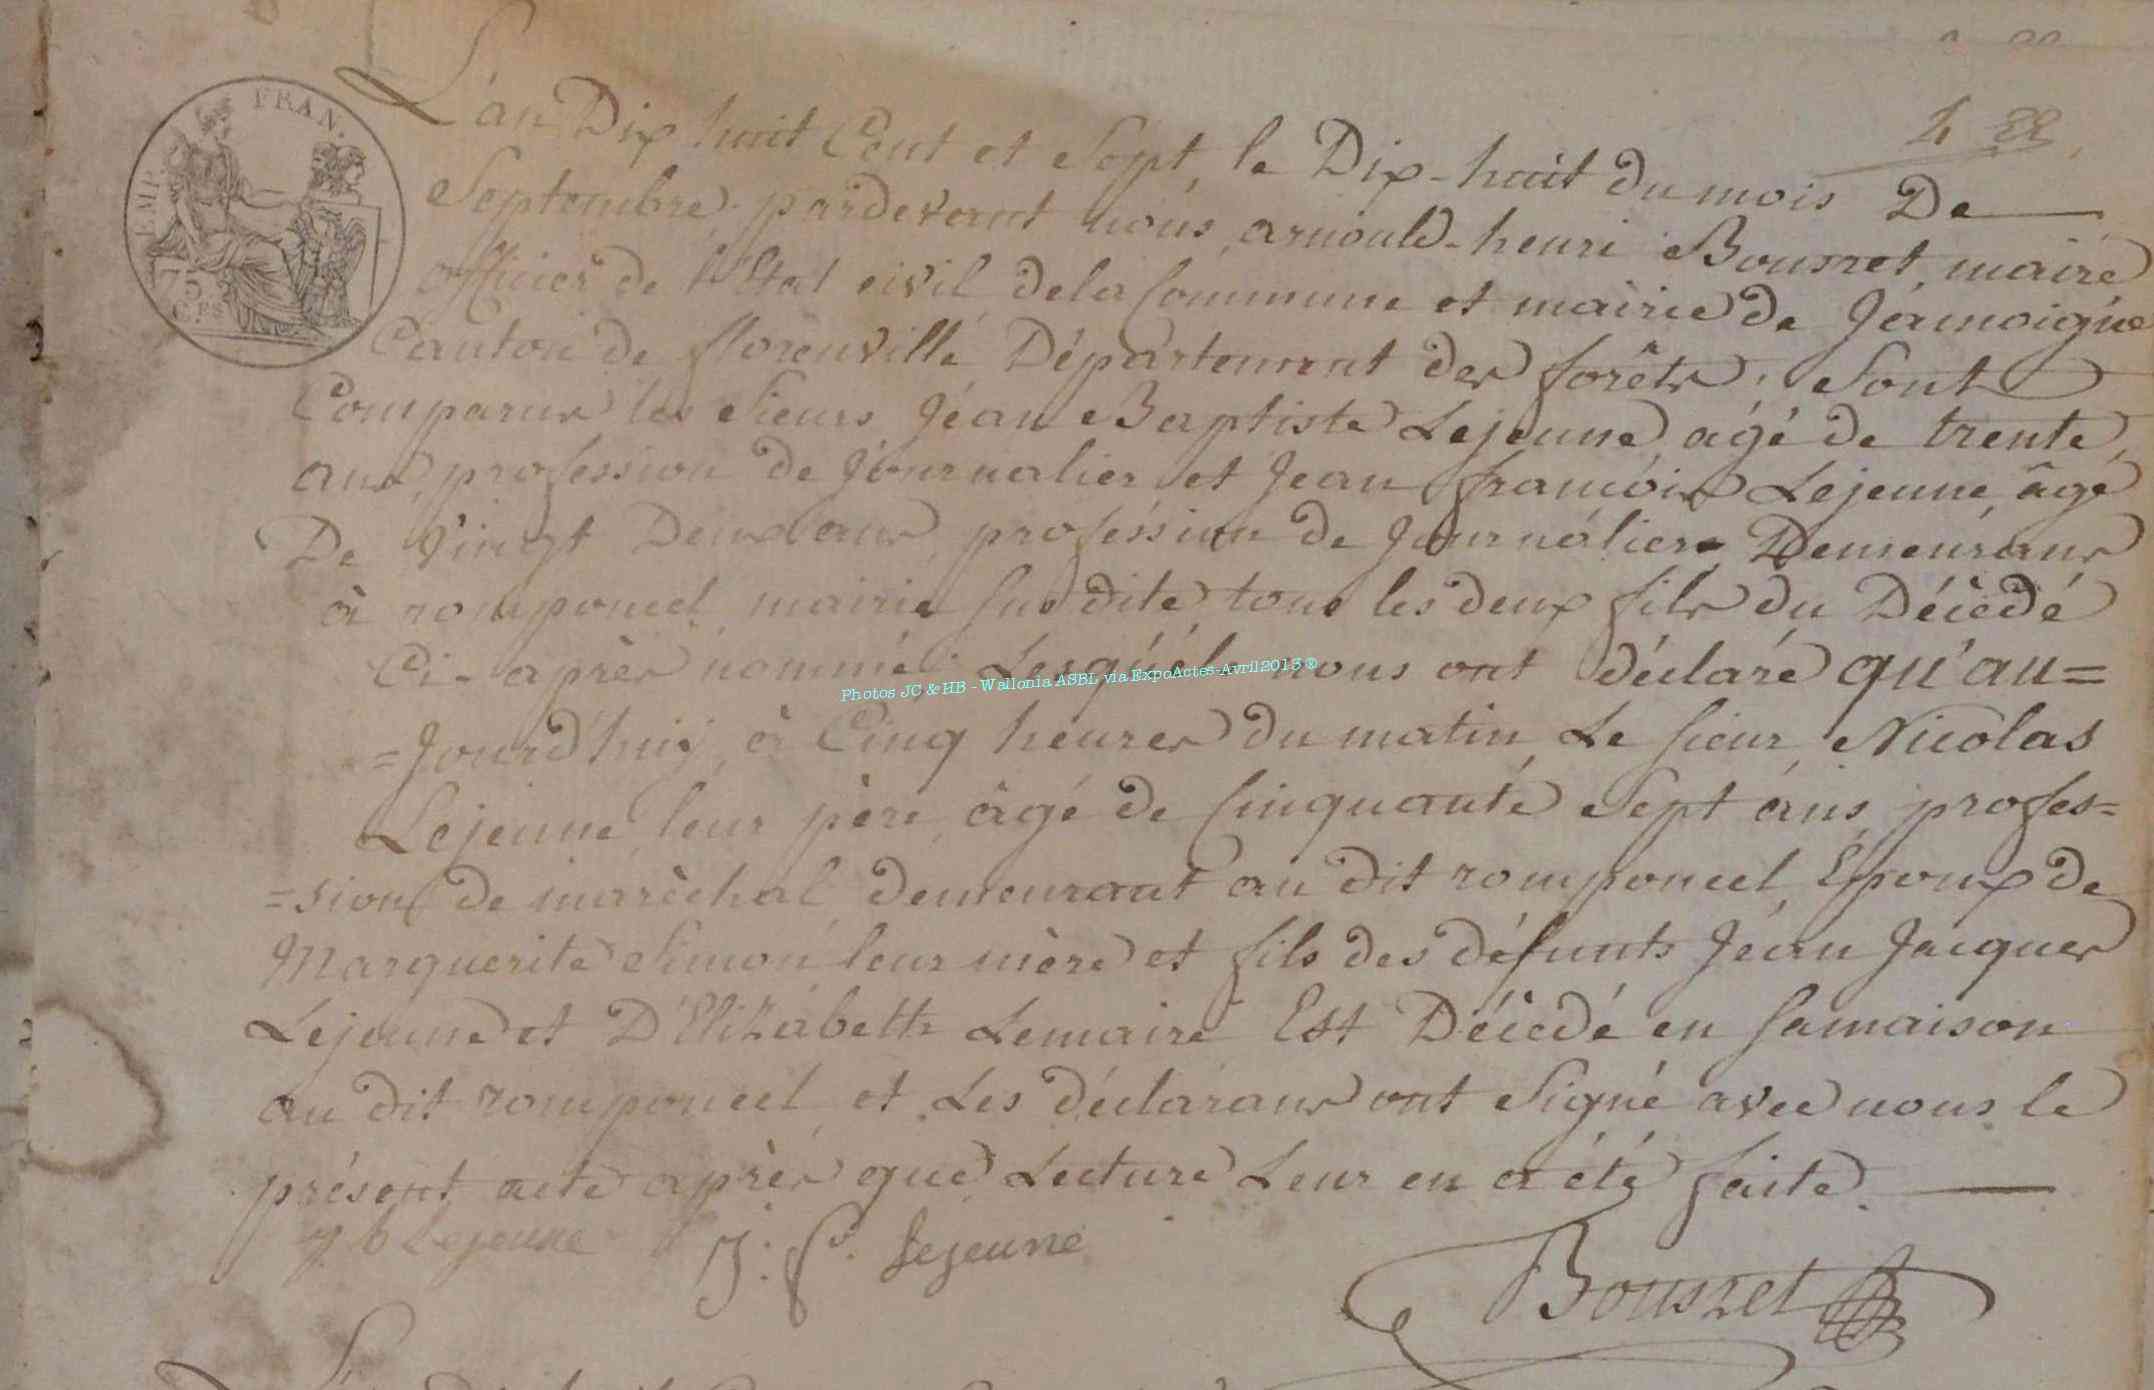 EMP. FRAN.
75
C.ES
4 82
L'an Dix huit Cent et Sept, le Dix-huit du mois De
Septembre, pardevant nous, arnould-henri Bousret, maire
officier de l'Etat civil dela Commune et mairie de Jamoigne
Canton de florenville Département des forêts, Sont
Comparus les Sieurs Jéan Baptiste Lejeune, agé de trente,
ans, profession de Journalier et Jean francois Lejeune, âgé
De Vingt Deux ans, profession de Journalier, Demeurans
à romponcel, mairie susdite, tous les deux fils du Décédé
Ci-après nommé; Lesquels nous ont déclaré qu'au=
=Jourd'huy, à Cinq heures du matin, Le sieur Nicolas
Lejeune, leur père, âgé de Cinquante Sept ans, profes=
=sion de maréchal, demeurant au dit romponcel, Epoux de
Marguerite Simon leur mère et fils des défunts Jéan Jacques
Lejeune et D'Elizabeth Lemaire Est Décédé en samaison
au dit romponcel, et Les déclarans ont Signé avec nous le
présent acte après que Lecture Leur en a été faite.
J b Lejeune J: f. Lejeune
Bousret
Photos JC & HB - Wallonia ASBL via ExpoActes-Avril2013 ®